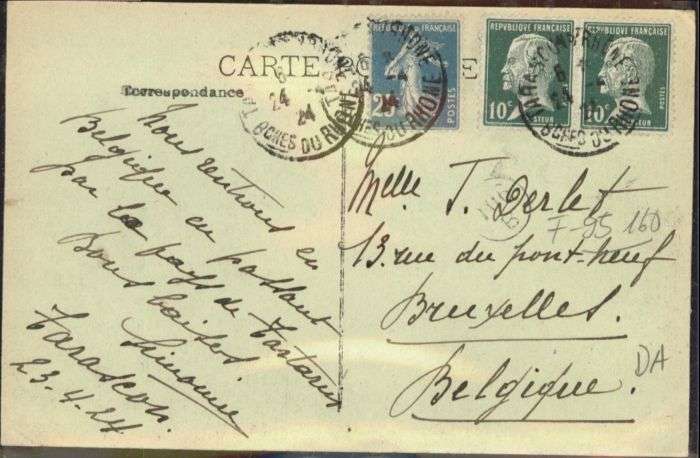 CARTE
Correspondance
Nous rentrons en
Belgique en passant
par le pays de Tartarin
Bons baisers
Simonne
Tarascon
23.4.24
REPUBLIQUE FRANÇAISE
25c
POSTES
REPUBLIQUE FRANÇAISE
10c
POSTES
PASTEUR
REPUBLIQUE FRANÇAISE
10c
POSTES
TEUR
TARASCON S RHONE
24
24
BCHES DU RHONE
Melle J. Derlet
13. rue du pont-neuf
Bruxelles.
Belgique.
F-95 160
DA